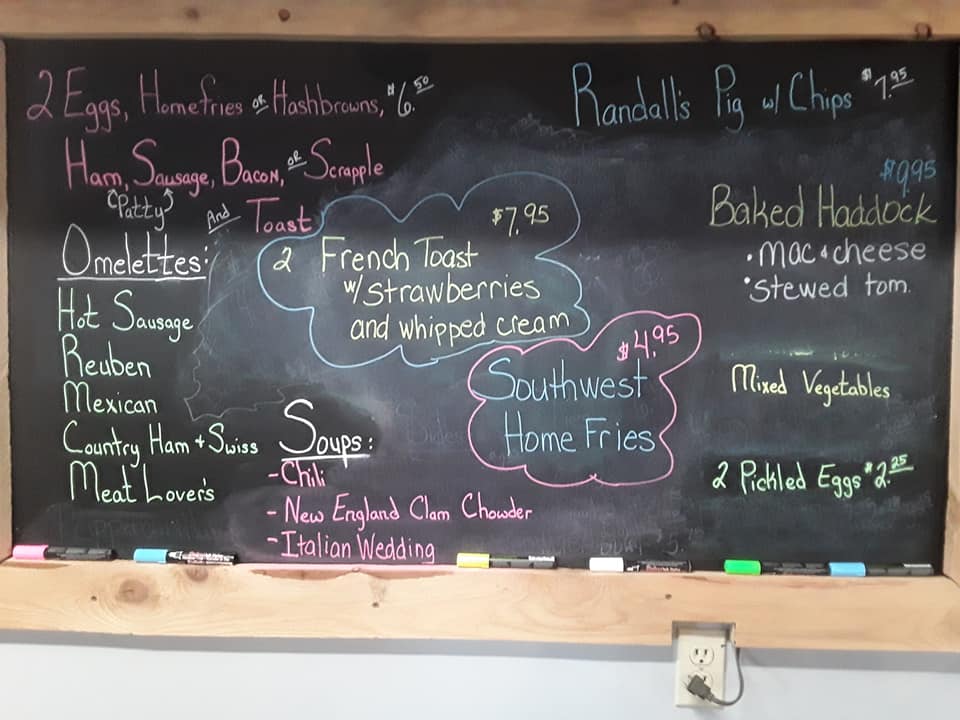 2 Eggs, Homefries or Hashbrowns, $6.50
Ham, Sausage, Bacon, or Scrapple
(Patty)
And Toast
Omelettes:
Hot Sausage
Reuben
Mexican
Country Ham + Swiss
Meat Lover's
$7.95
2 French Toast
w/ Strawberries
and whipped cream
$4.95
Southwest
Home Fries
Soups:
- Chili
- New England Clam Chowder
- Italian Wedding
Randall's Pig w/ Chips $7.95
$9.95
Baked Haddock
• Mac & cheese
• Stewed tom.
Mixed Vegetables
2 Pickled Eggs $2.25